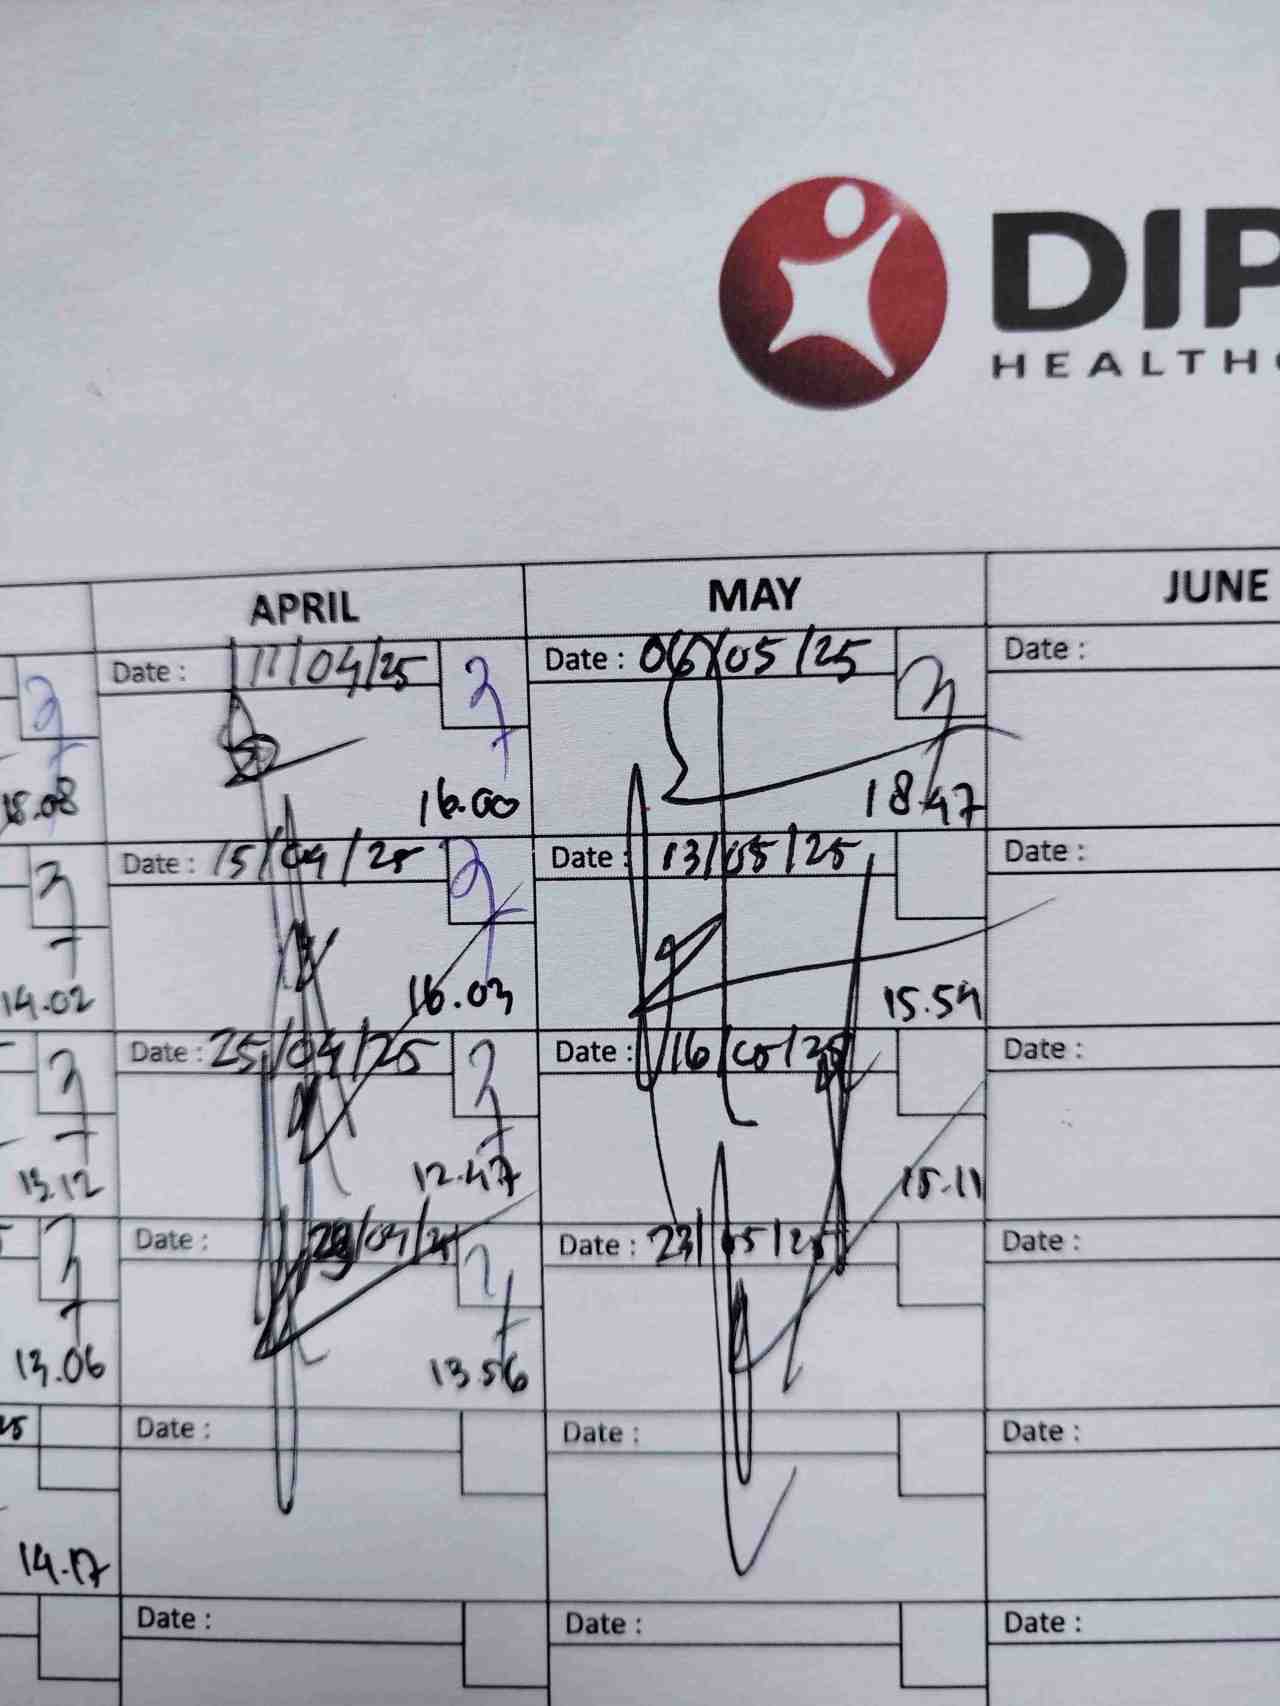 DIP
HEALTHC
APRIL MAY JUNE
Date : 11/04/25 Date : 06/05/25 Date :
18.08 16.00 18.47
Date : 15/04/25 Date : 13/05/25 Date :
14.02 16.03 15.54
Date : 25/04/25 Date : 16/05/25 Date :
13.12 12.47 15.11
Date : Date : 23/05/25 Date :
13.06 13.56
25 Date : Date : Date :
14.17
Date : Date : Date :